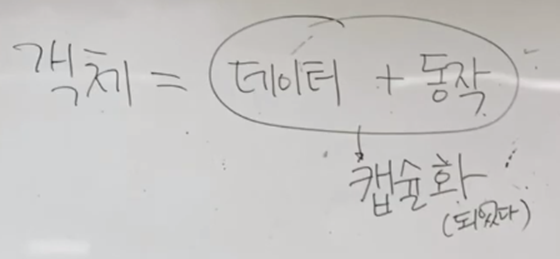 객체 = 데이터 + 동작
캡슐화
(되있다)